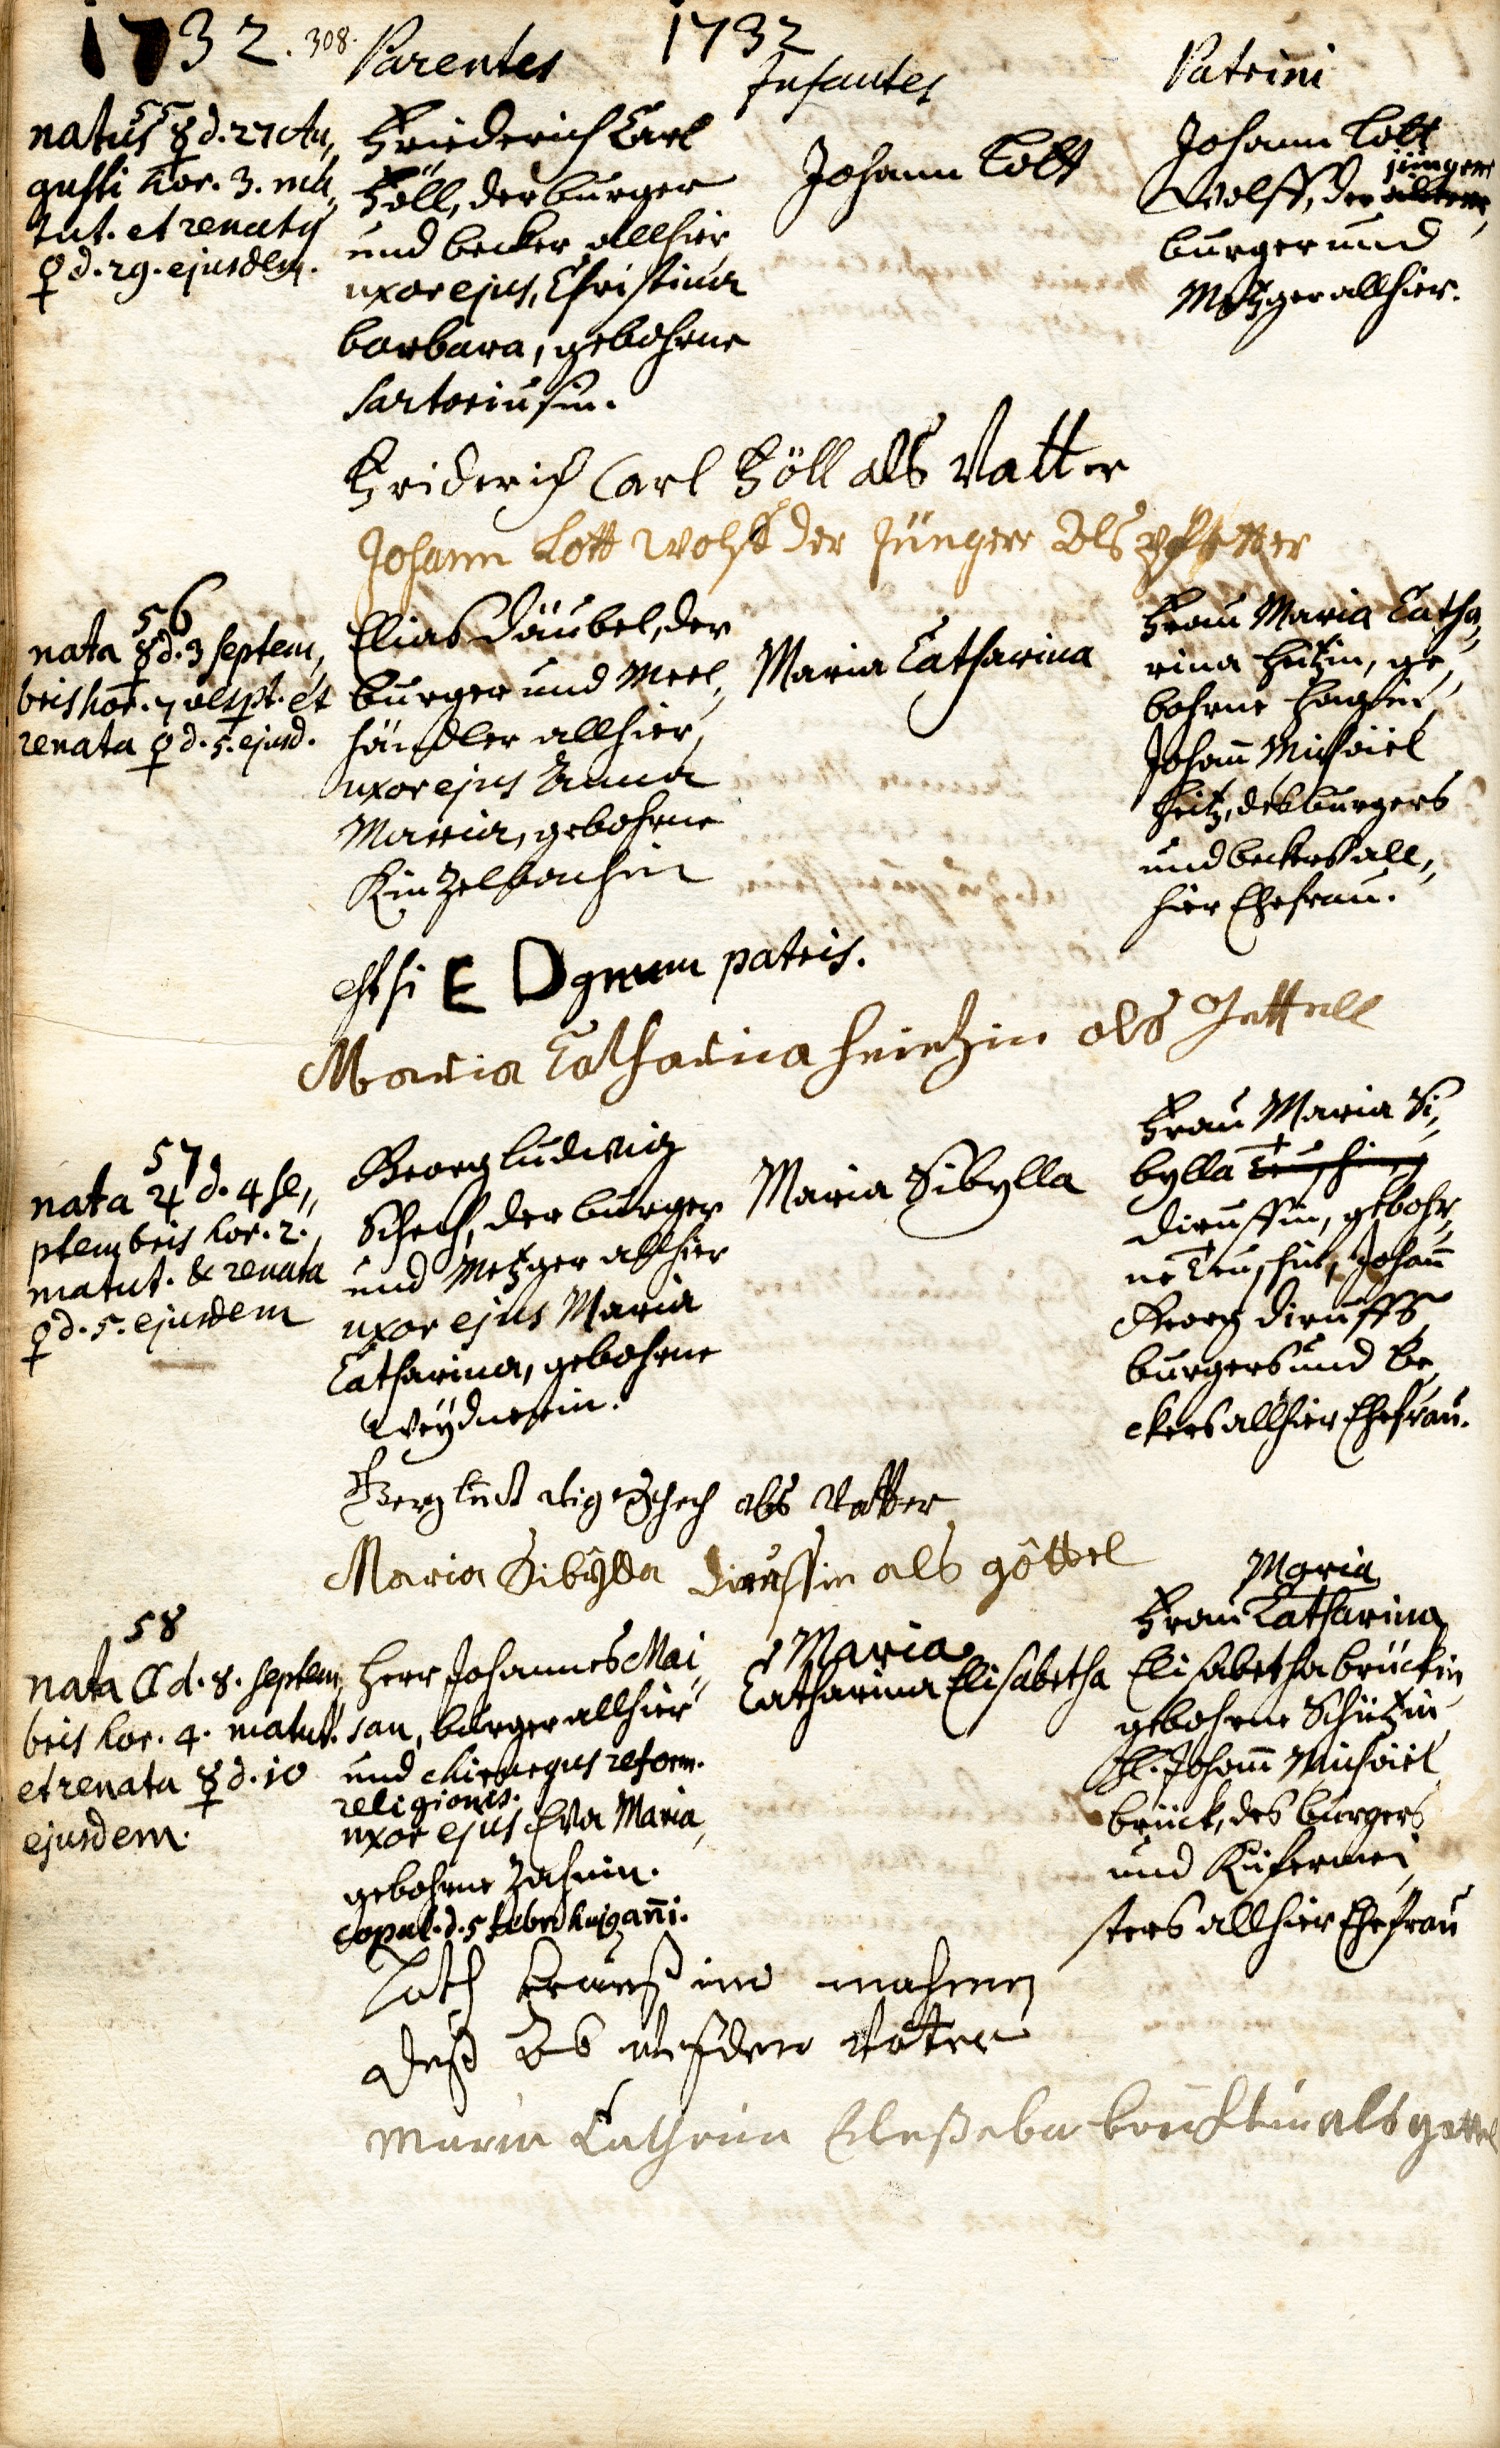 1732. 308. 1732
Parentes
Infantes
Patrini
55
natus ☿ d. 27 Au,,
gusti hor. 3. ma,,
tut. et renatus
♀ d. 29. ejusdem.
Friederich Carl
Föll, der burger
und becker allhier
uxor ejus, Christina
barbara, gebohrne
Sartoriusin.
Johann Lott
Johann Lott
jünger
Wolff, der
burger und
Metzger allhier.
Friderich Carl Föll als Vatter
Johann Lott Wolff der Jünger als pfetter
56
nata ☿ d. 3 septem,,
bris hor. 7 vespt. et
renata ♀ d. 5. ejusd.
Elias Däubel, der
burger und Meel,,
händler allhier,
uxor ejus Anna
Maria, gebohrne
Kinzelbachin
Maria Catharina
Frau Maria Catha,,
rina Heitzin, ge,,
bohrne
Johan̄ Michaël
Heitz, des burgers
und beckers all,,
hier Ehefrau.
E D gnum patris.
Maria Catharina Heintzin als Gettell
57
nata ♃ d. 4 se,,
ptembris hor. 2.
matut. & renata
♀ d. 5. ejusdem
Georg Ludwig
Schech, der burger
und Metzger allhier
uxor ejus Maria
Catharina, gebohrne
Weydnerin.
Maria Sibylla
Frau Maria Si,,
bylla
Diruffin, gebohr,,
ne Teuschin, Johan̄
Georg Diruffs
burgers und be,,
ckers allhier Ehefrau.
Gerg Lud wig Schech als Vatter
Maria Sibÿlla Diruffin als göttel
58
nata ☾ d. 8. septem,,
bris hor. 4. matut.
et renata ☿ d. 10
ejusdem.
Herr Johannes Mai,,
san, burger allhier
und chirurgus reform.
religionis.
uxor ejus Eva Maria,
gebohrne Zahnin.
copul. d. 5 febr hujg an̄i.
Maria
Catharina Elisabetha
Maria
Frau Catharina
Elisabetha brückin
gebohrne Schützin
H. Johan̄ Michaël
brück, des burgers
und Küfermei,,
sters allhier Ehefrau
im nahmen
deß Vater
Maria Cathrina brücktin als gettel